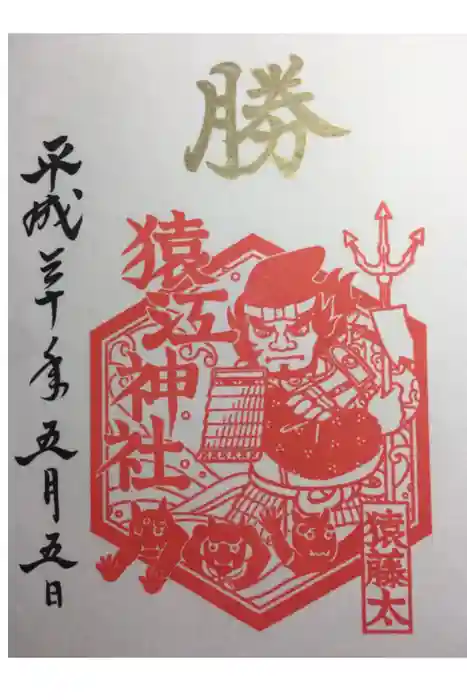 勝
猿江神社
猿藤太
平成三十年五月五日